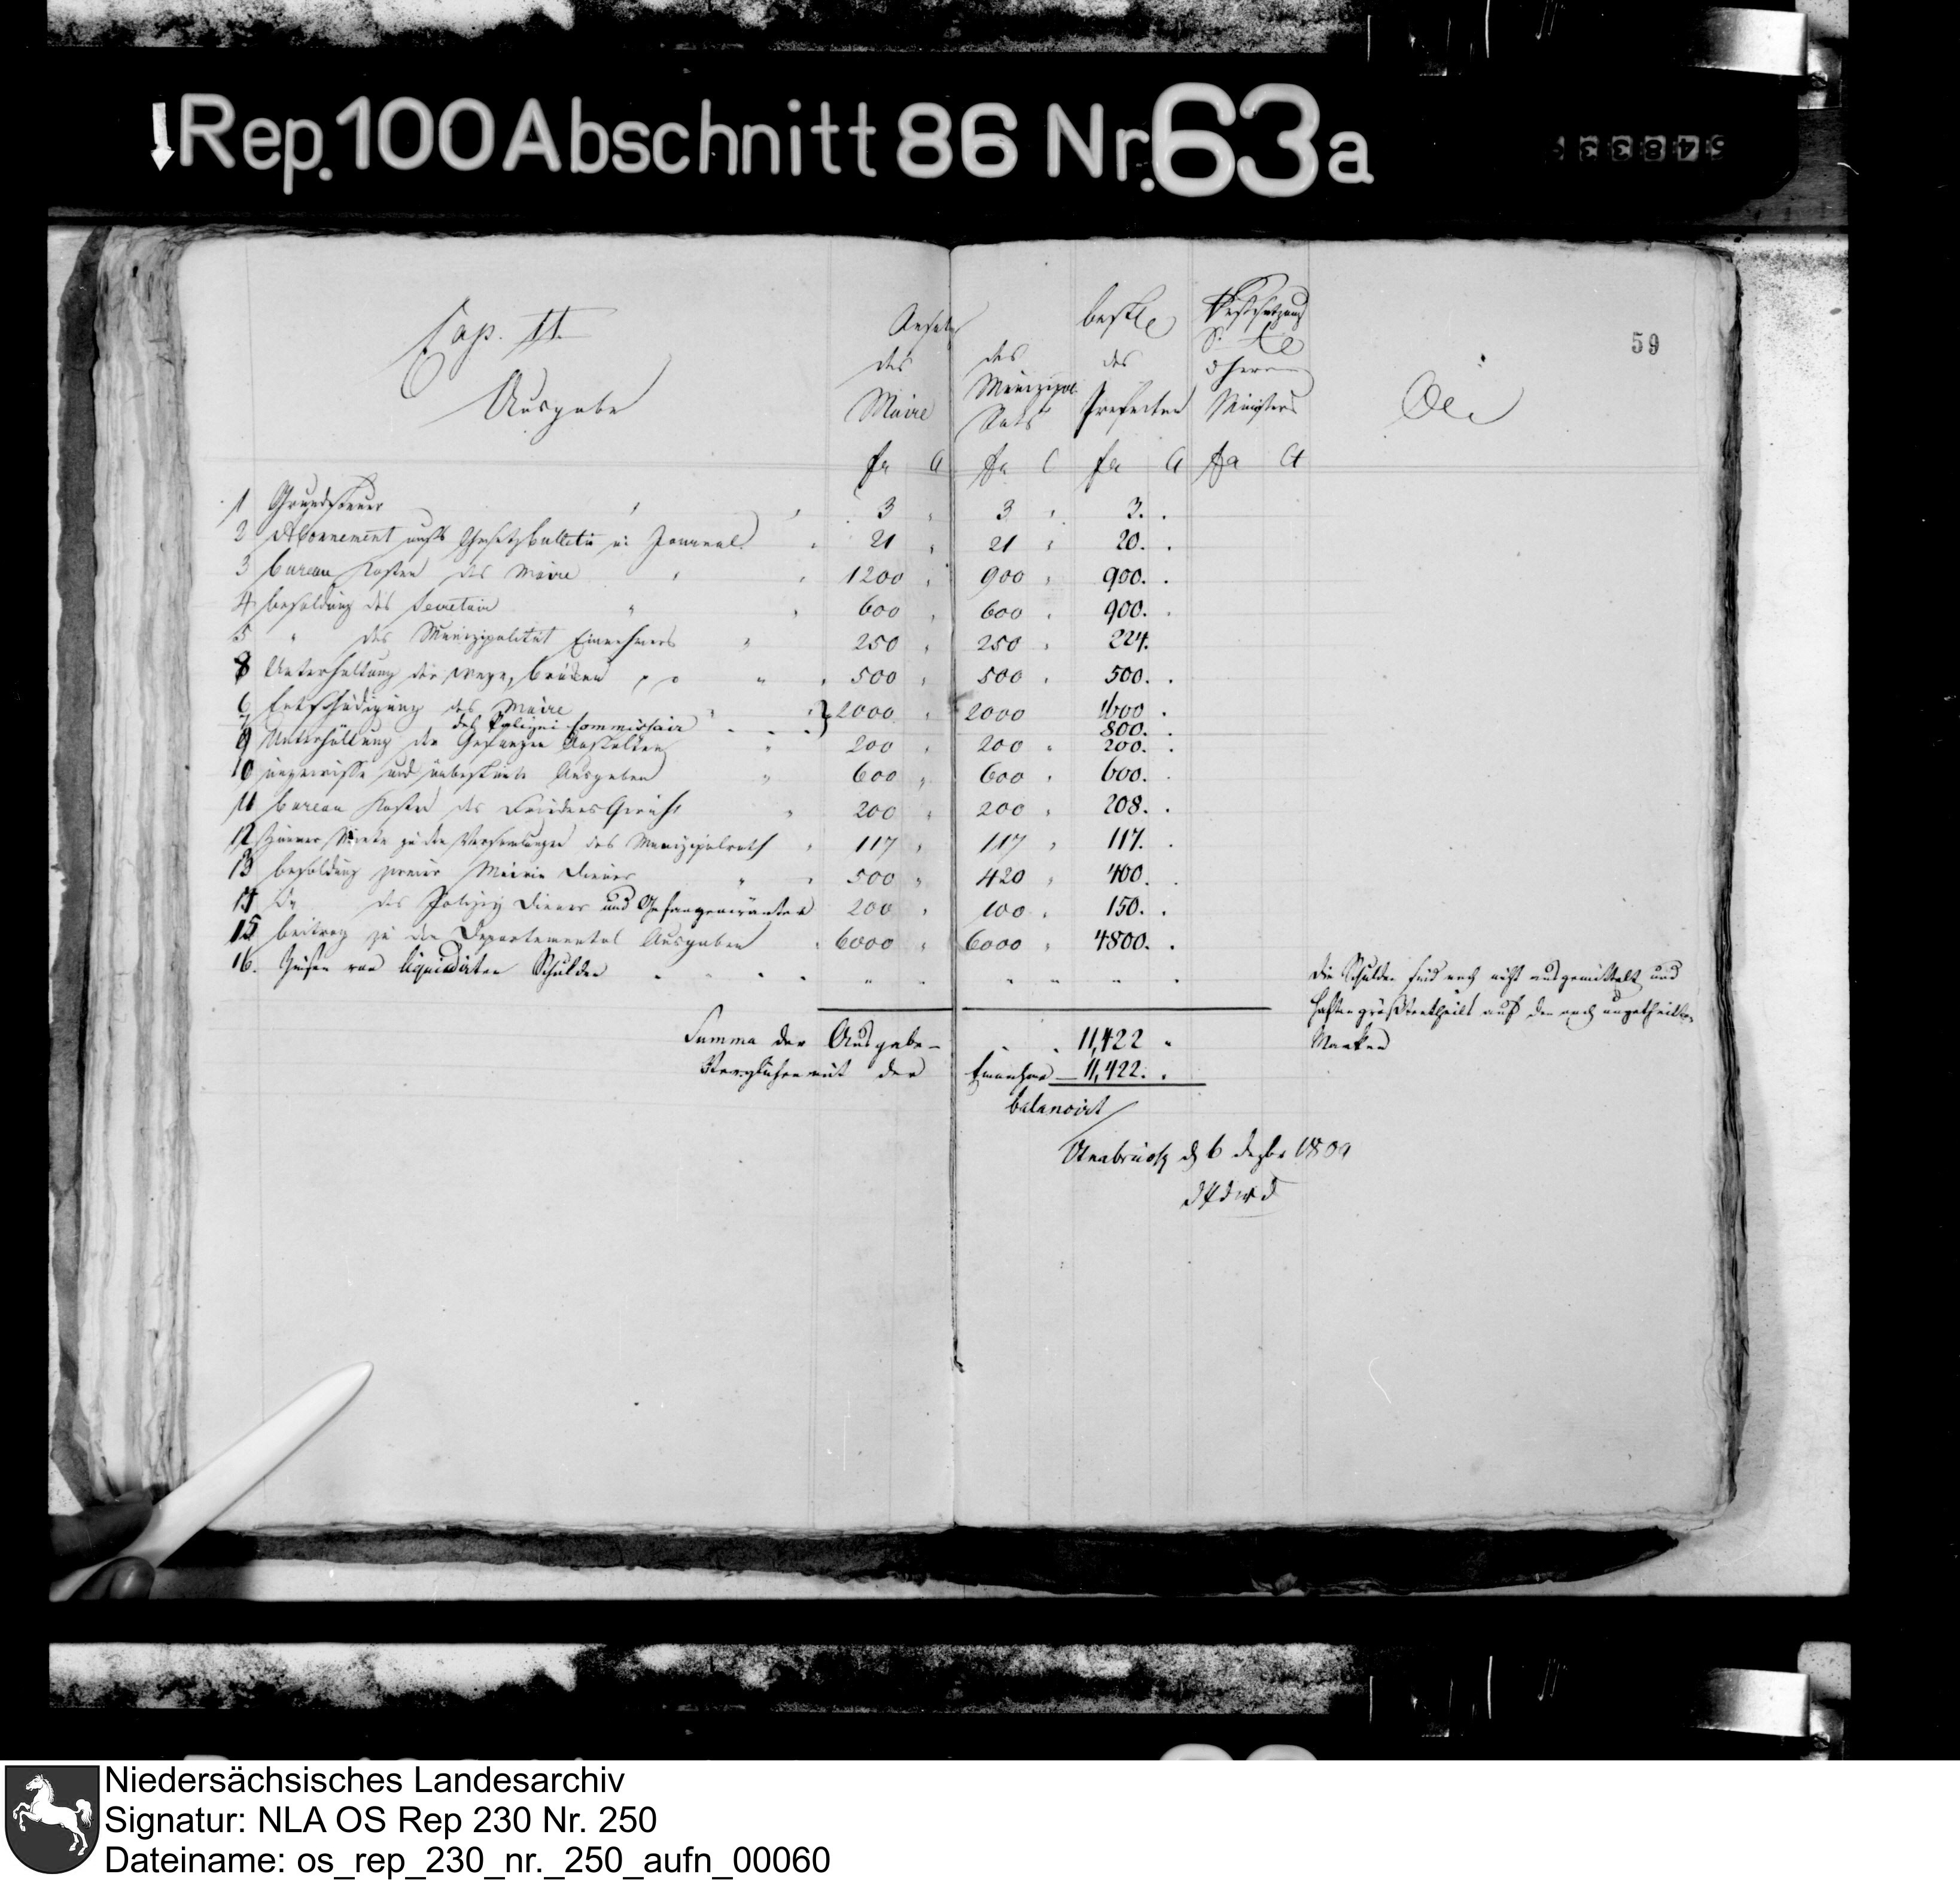 Rep. 100 Abschnitt 86 Nr. 63a
59
Cap. II.
Ausgabe
Ansatz
des
Maire
des
Munizipal
Rats
des
Prefecten
Festsetzung
Ministers
fr C fr C fr C fr Ct
1 Grundsteuer 3 3 3.
2 Abonnement aufs Gesetzbulletin u: Journal 21 21 20.
3 bureau Kosten des Maire 1200 900 900.
4 besoldung des Secretair 600 600 900.
5 " des Munizipalität Einnehmers 250 250 224.
8 Unterhaltung der Wege, brücken 500 500 500.
6 Entschädigung des Maire 2000 2000 1600
7 des Polizei Commissair 800.
9 Unterhaltung der Gefangen Anstalten 200 200 200.
10 ungewisse und unbestimte Ausgaben 600 600 600.
11 bureau Kosten des FriedensGericht 200 200 208.
12 Zimmer Miete zu den Versamlungen des Munizipalrath 117 117 117.
13 besoldung zweier Mairie Diener 500 420 400.
14 Do des Polizey Dieners und Gefangenwärter 200 100 150.
15 beitrag zu den Departemental Ausgaben 6000 6000 4800.
16. Zinsen von liquidirten Schulden
die Schulden sind noch nicht ausgemittelt und
haften größtentheils auf den noch ungetheilten
Marken
Summa der Ausgabe 11,422
Verglichen mit der Einnahme 11,422.
balancirt
Osnabrück d 6 Dezbr 1809
Niedersächsisches Landesarchiv
Signatur: NLA OS Rep 230 Nr. 250
Dateiname: os_rep_230_nr._250_aufn_00060